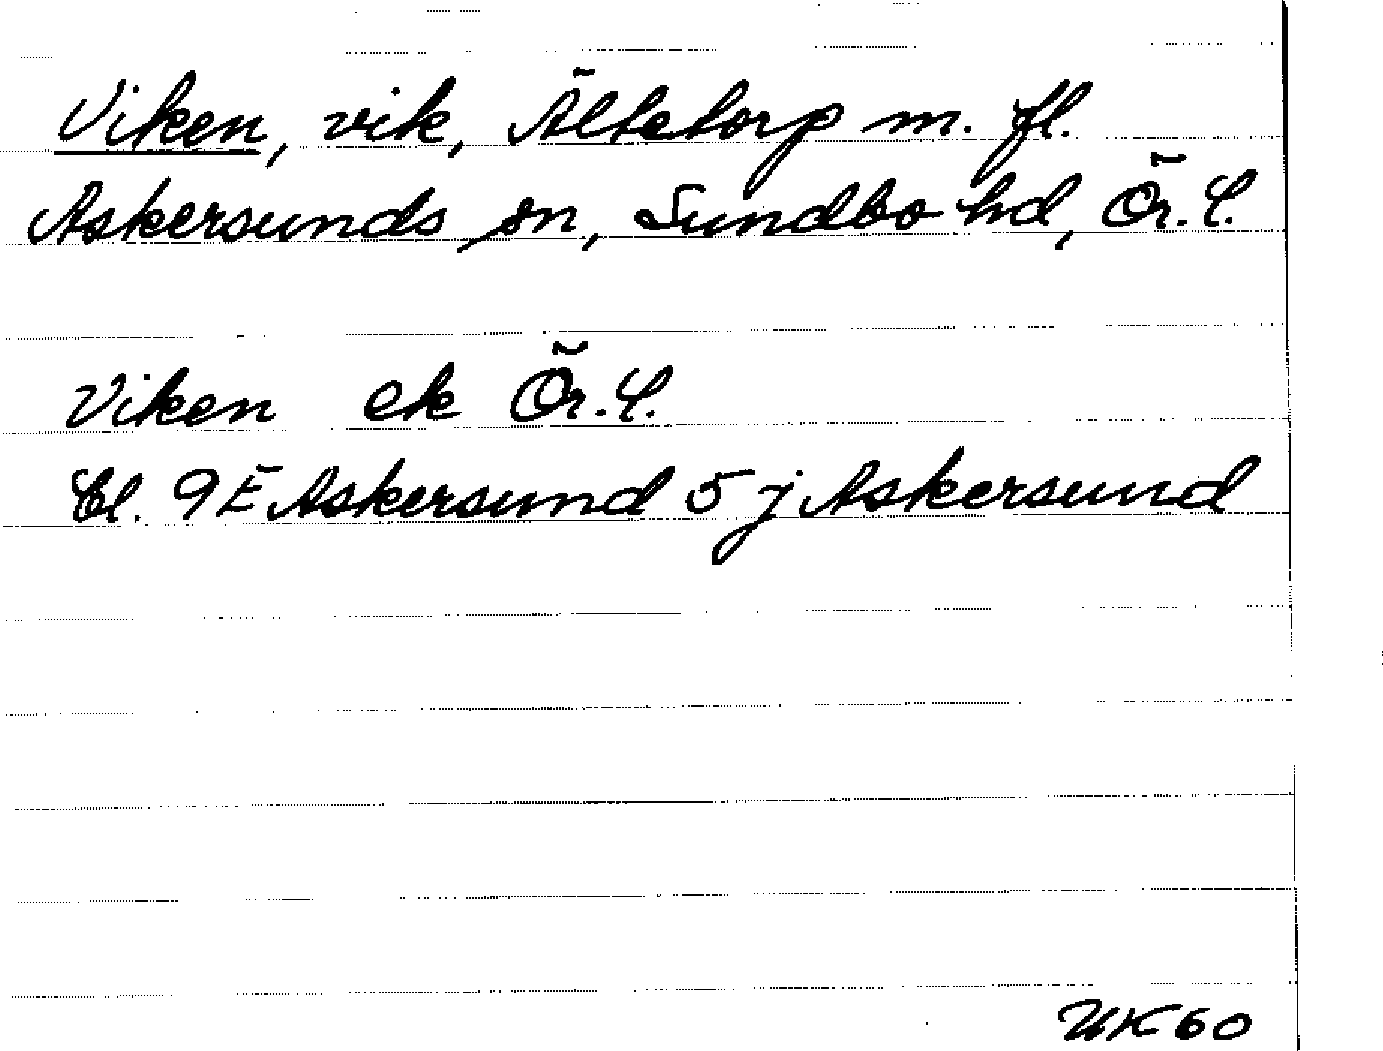 Viken, vik, Ältetorp m. fl.
Askersunds sn, Sundbo hd, Ör. L.
Viken ek Ör. L.
Bl. 9E Askersund 5 j Askersund
UK 60